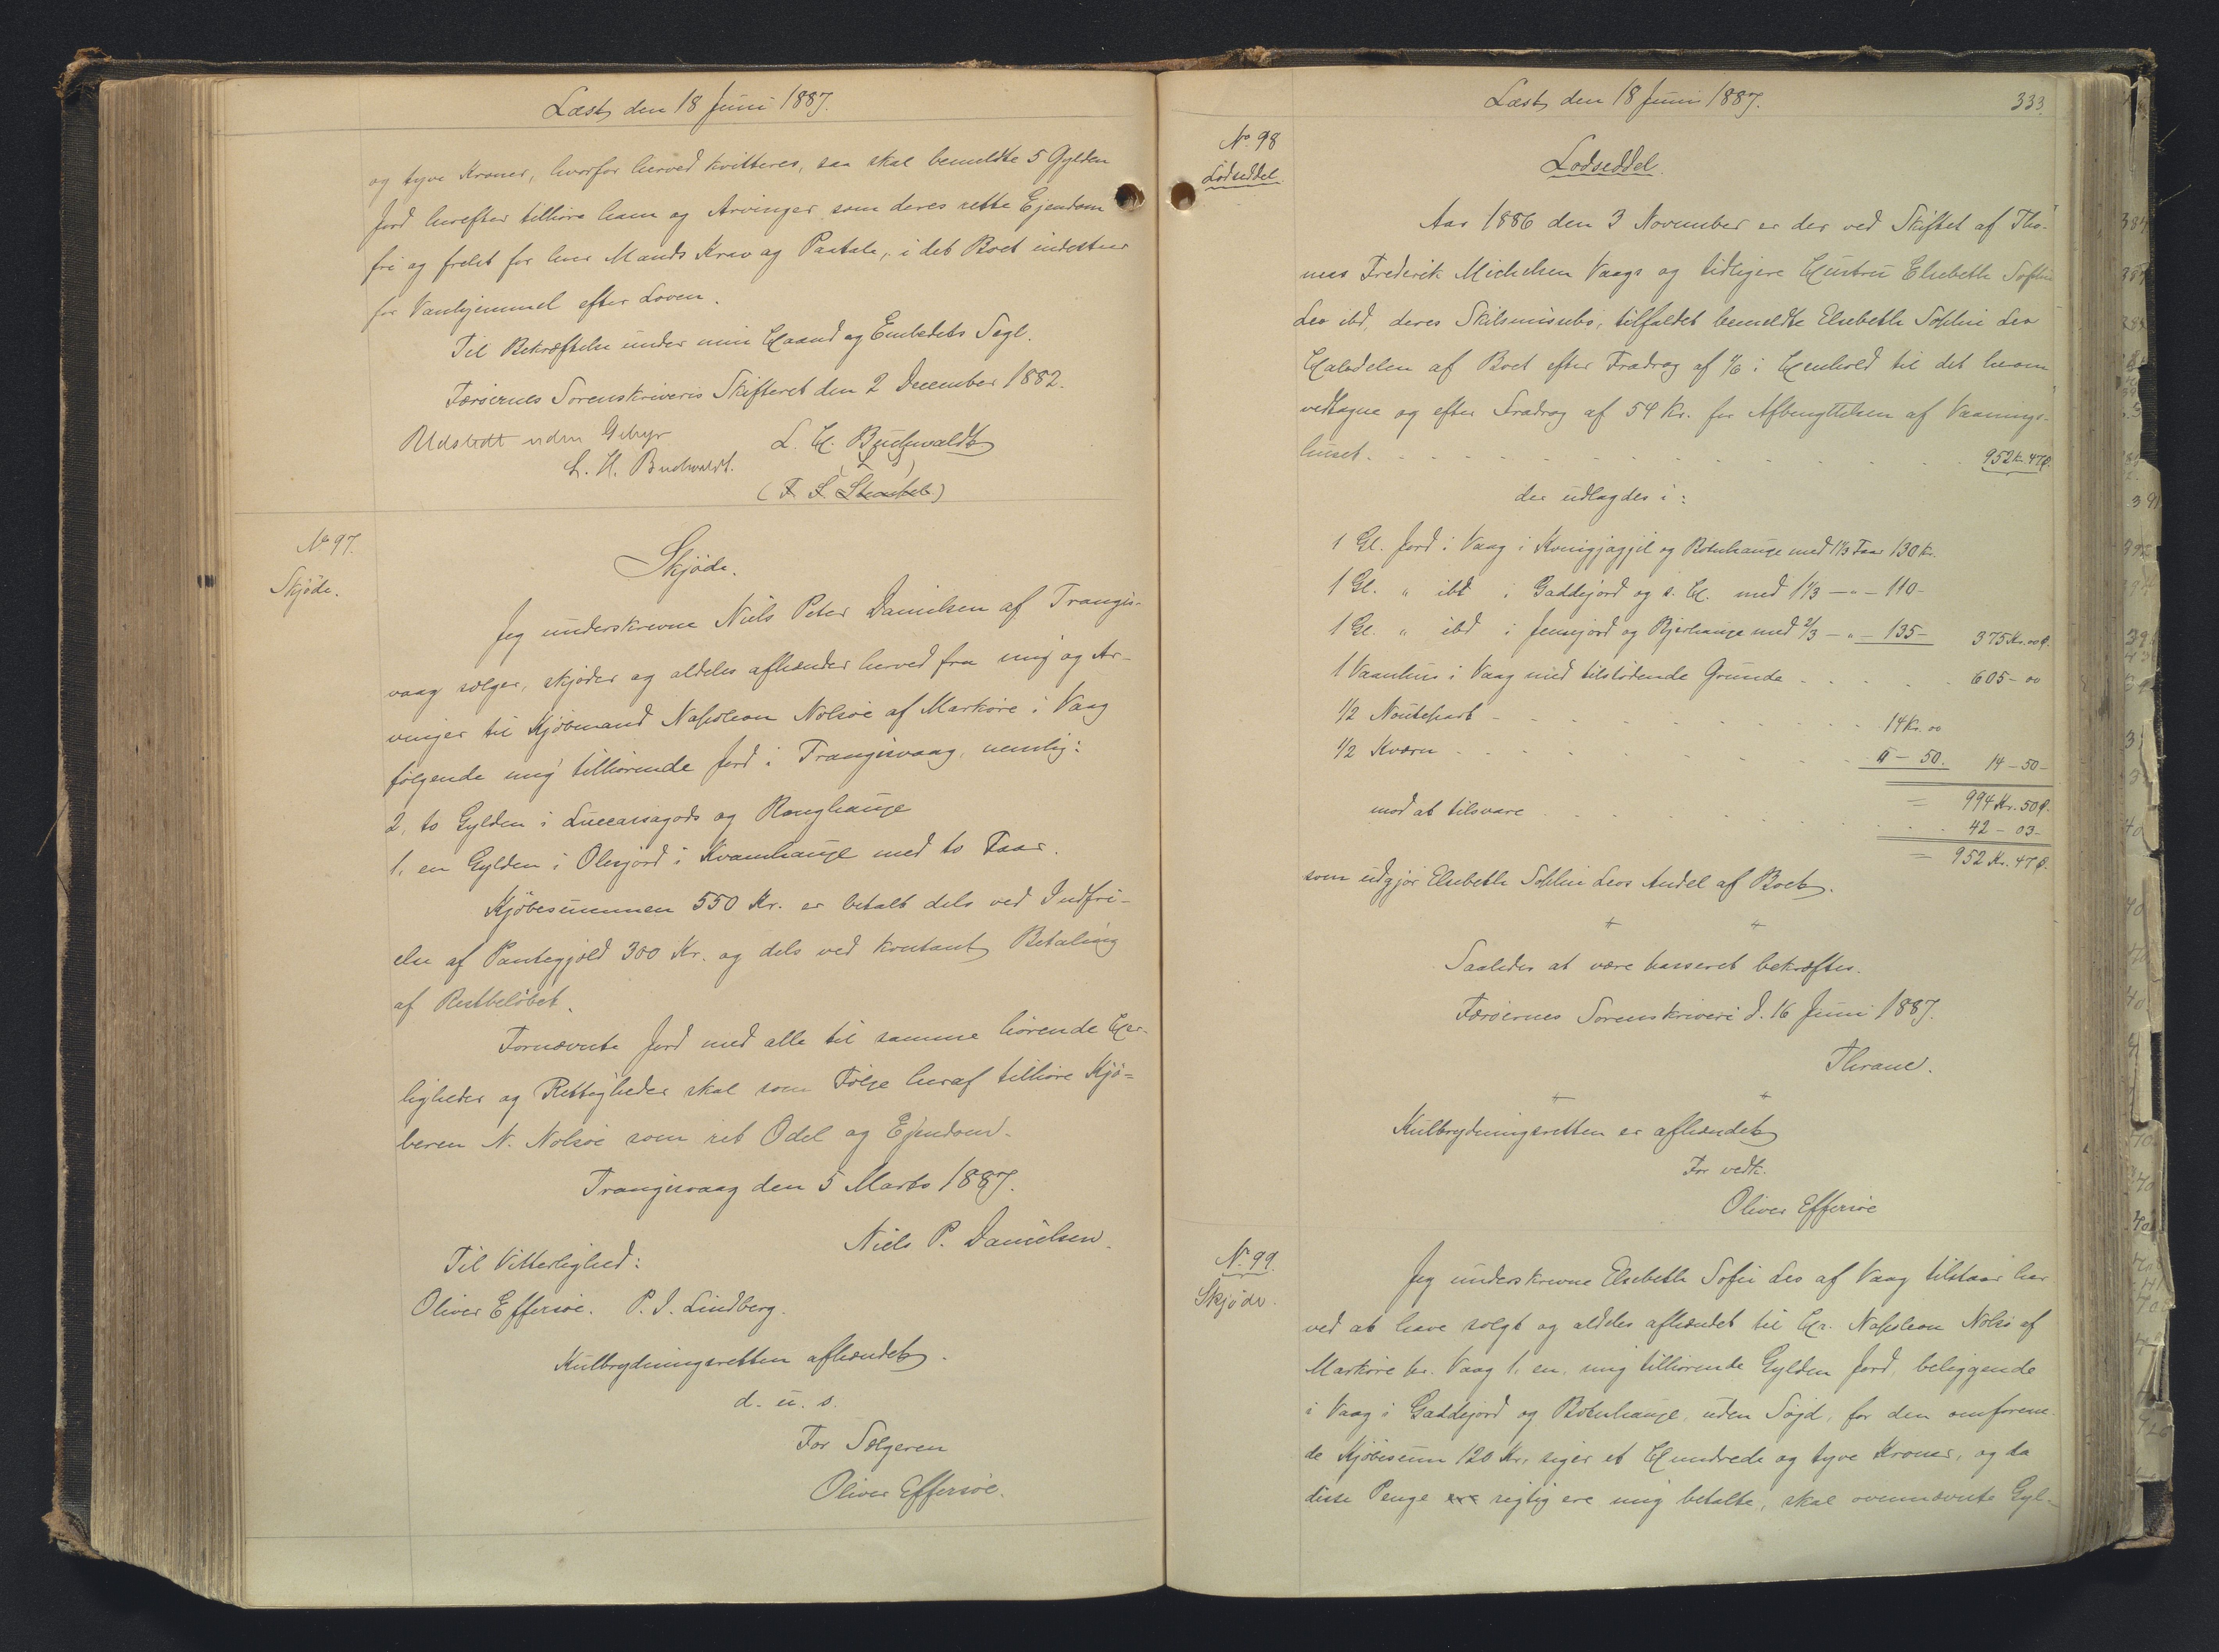 Læst den 18 Juni 1887.
og tyve Kroner, hvorfor herved kvitteres, saa skal bemeldte 5 Gylden
Jord herefter tilhöre ham og Arvinger som deres rette Ejendom
fri og frelst for hver Mands Krav og Paatale, i det Boet indestaar
for Vanhjemmel efter Loven.
Til Bekræftelse under min Haand og Embedets Segl.
Færöernes Sorenskriveris Skifteret den 2 December 1882.
Udstedt uden Gebyr
L. H. Buchwaldt
L. H. Buchwaldt.
(L S)
No 97.
Skjöde.
Skjöde.
Jeg underskrevne Niels Peter Danielsen af Trangis-
vaag sælger, skjöder og aldeles afhænder herved fra mig og Ar-
vinger til Kjöbmand Napoleon Nolsöe af Marköre i Vaag
fölgende mig tilhörende Jord i Trangisvaag, nemlig:
2, to Gylden i Luccassagods og Ranghauge
1, en Gylden i Olesjord i Kvamhauge med to Faar.
Kjöbesummen 550 Kr. er betalt dels ved Indfri-
else af Pantegjæld 300 Kr. og dels ved kontant Betaling
af Restbelöbet.
Fornævnte Jord med alle til samme hörende Her-
ligheder og Rettigheder skal som Fölge heraf tilhöre Kjö-
beren N. Nolsöe som ret Odel og Ejendom.
Trangisvaag den 5 Marts 1887.
Niels P. Danielsen.
Til Vitterlighed:
Oliver Effersöe. P. J. Lindberg.
Kulbrydningsretten afhændet.
d. u. s.
For Sælgeren
Oliver Effersöe.
Læst den 18 Juni 1887.
333.
No 98
Lodseddel.
Lodseddel.
Aar 1886 den 3 November er der ved Skiftet af Tho-
mas Frederik Michelsen Vaags og tidligere Hustru Elsebeth Sofhie
Leo ibd, deres Skilsmissebo, tilfaldet bemeldte Elsebeth Sofhie Leo
Halvdelen af Boet efter Fradrag af 1/6 i Henhold til det herom
vedtagne og efter Fradrag af 54 Kr. for Afbenyttelsen af Vaanings-
huset. 952 Kr. 47 Ø.
der udlagdes i:
1 Gl. Jord i Vaag i Kvigjagjil og Botnhauge med 1 1/3 Faar 130 Kr.
1 Gl. " ibd i Gaddejord og s. H. med 1 1/3 — " — 110 -
1 Gl. " ibd i Jensejord og Bjerhauge med 2/3 — " — 135 - 375 Kr. 00 Ø.
1 Vaanhus i Vaag med tilstödende Grunde 605 - 00
1/2 Noutepart 14 Kr. 00
1/2 Kværn 0 - 50. 14 - 50 -
= 994 Kr. 50 Ø.
mod at tilsvare 42 - 03 -
= 952 Kr. 47 Ø.
som udgjör Elsebeth Sofhie Leos Andel af Boet.
Saaledes at være passeret bekræftes.
Færöernes Sorenskriveri d. 16 Juni 1887.
Thrane.
Kulbrydningsretten er afhændet
For vedk.
Oliver Effersöe
No 99.
Skjöde.
Jeg underskrevne Elsebeth Sofie Leo af Vaag tilstaar her
ved at have solgt og aldeles afhændet til Hr. Napoleon Nolsö af
Marköre pr. Vaag 1, en, mig tilhörende Gylden Jord, beliggende
i Vaag i Gaddejord og Botnhauge, uden Söjd, for den omforene-
de Kjöbesum 120 Kr, siger et Hundrede og tyve Kroner, og da
disse Penge ere rigtig ere mig betalte, skal ovennævnte Gyl-